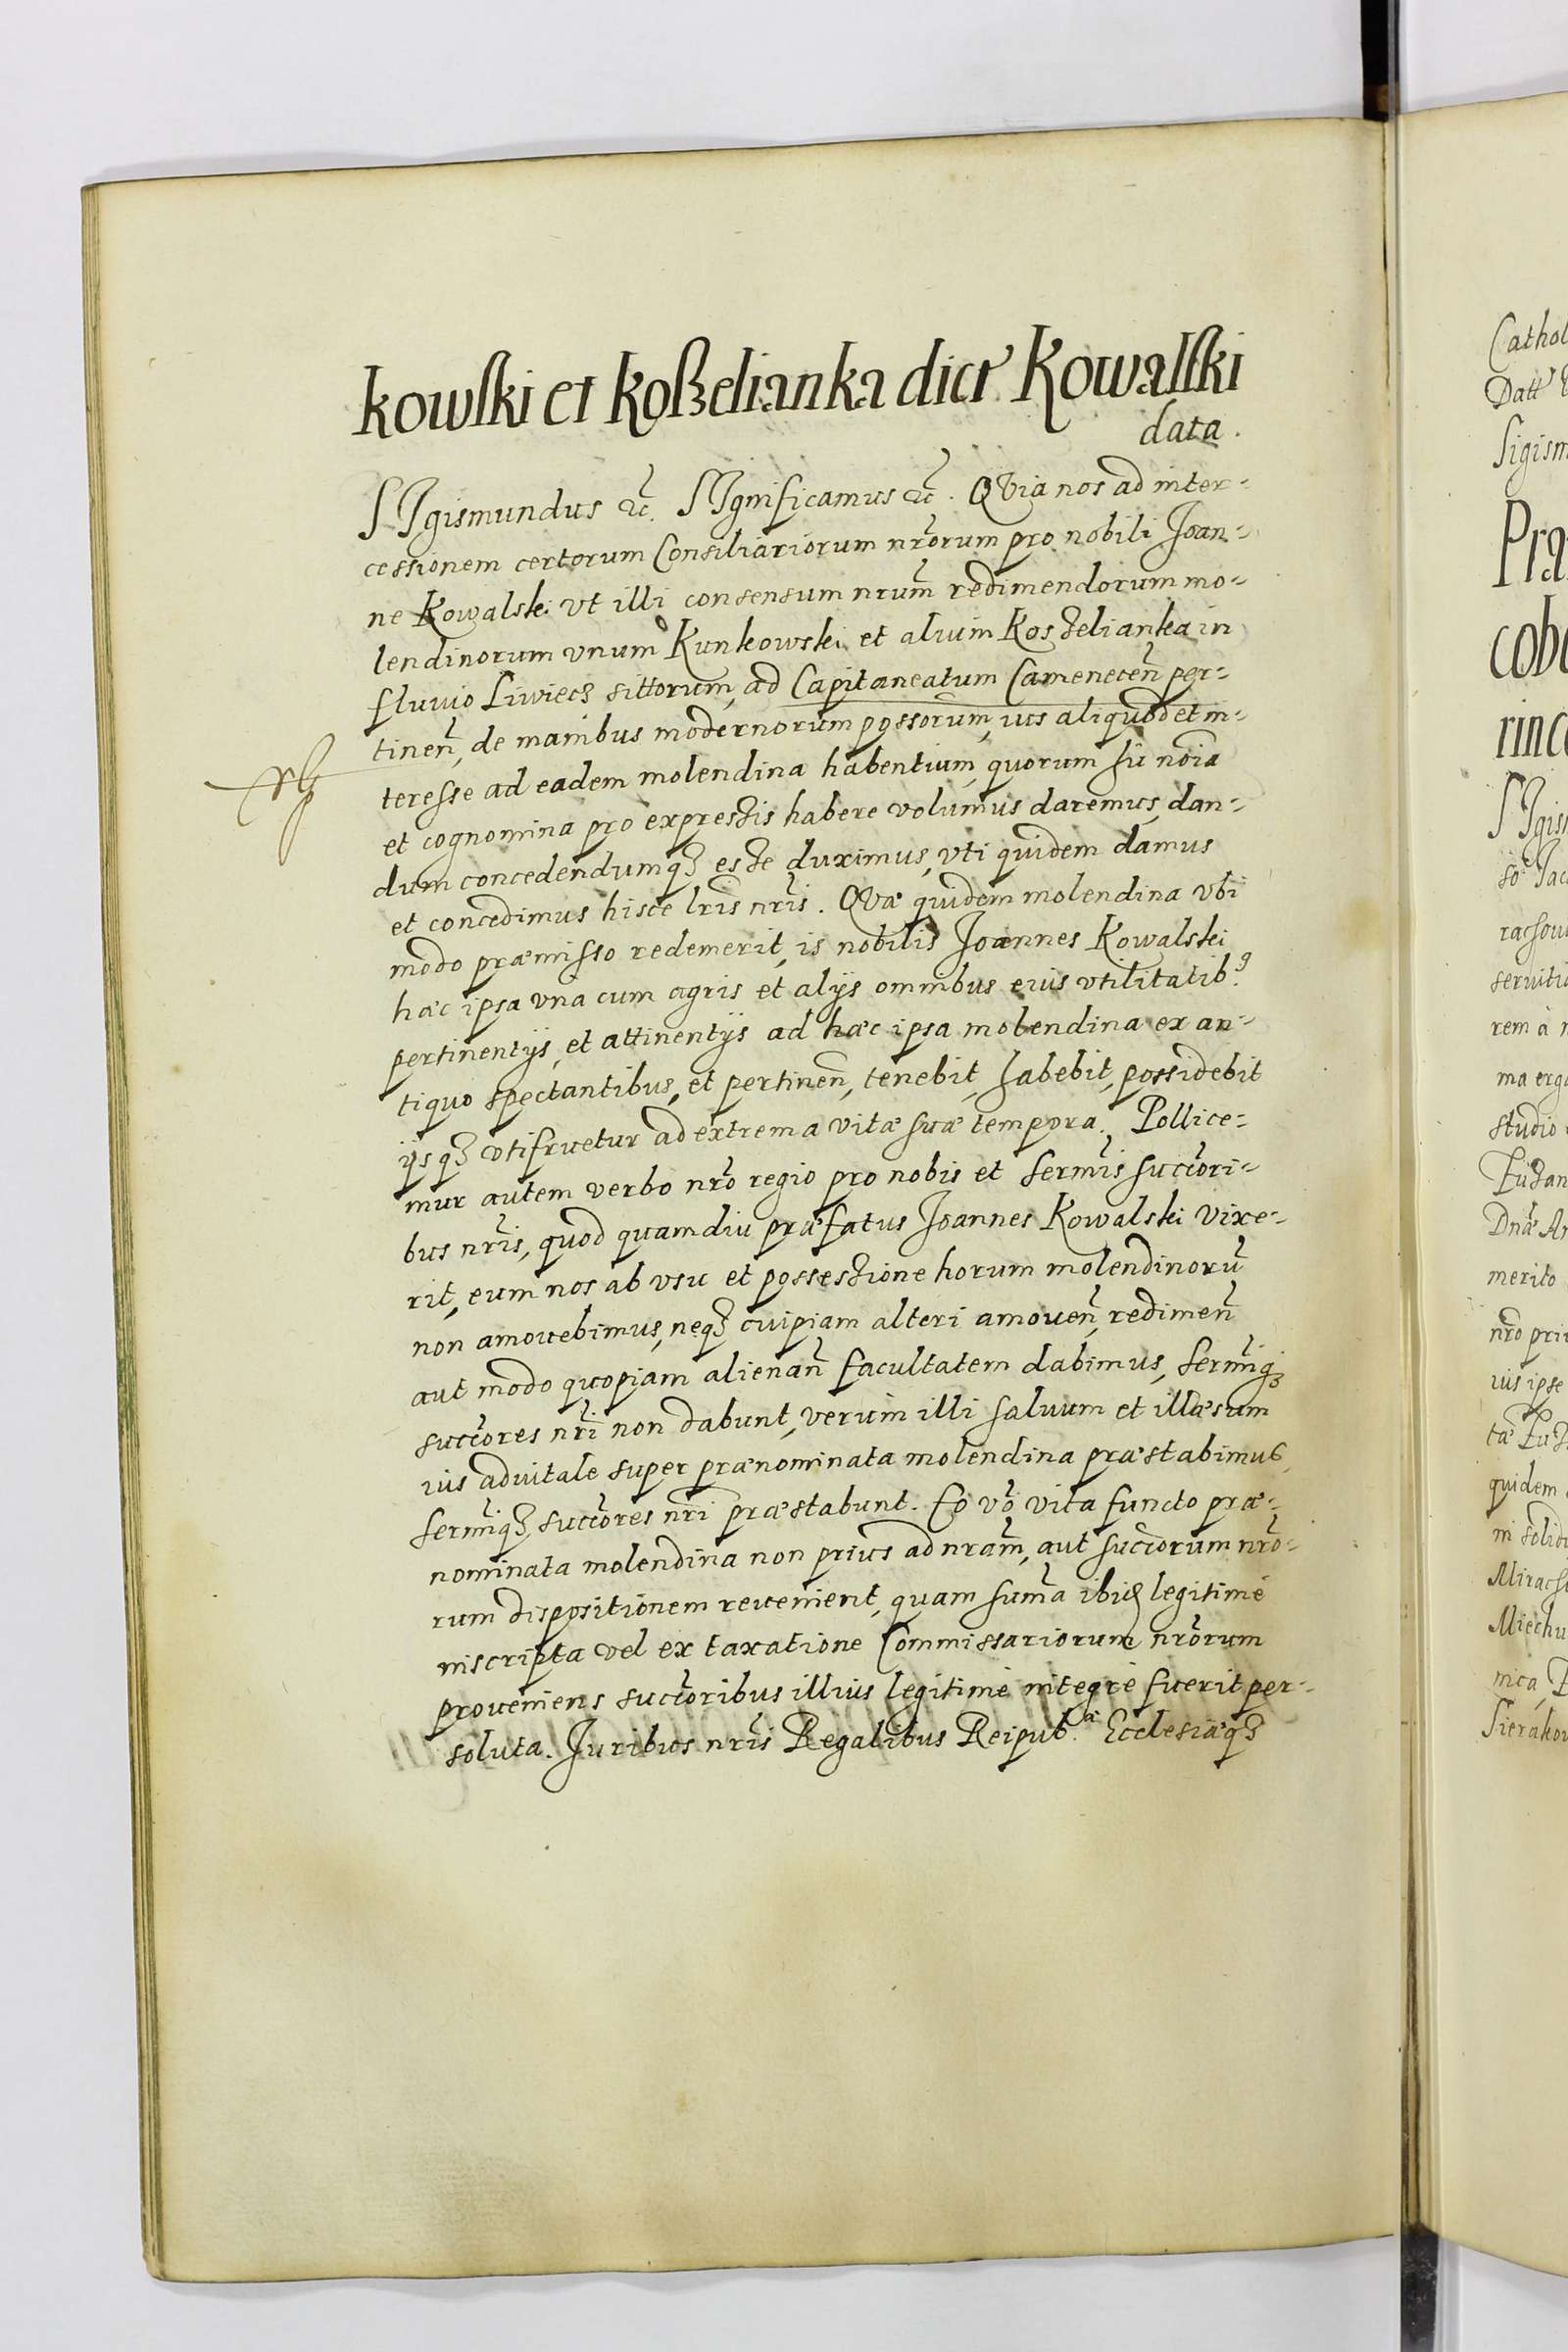 kowski et Koßelianka dict Kowalski
data.
SIgismundus &c. SIgnificamus &c. QVia nos ad inter-
cessionem certorum Consiliariorum nrorum pro nobili Joan-
ne Kowalski vt illi consensum nrum redimendorum mo-
lendinorum vnum Kunkowski et alium Kosselianka in
fluuio Liwiecz sittorum, ad Capitaneatum Camenecen per-
tinen, de manibus modernorum possorum, ius aliquod et in-
teresse ad eadem molendina habentium, quorum hic noia
et cognomina pro expressis habere volumus daremus, dan-
dum concedendumq3 esse duximus, vti quidem damus
et concedimus hisce lris nris. QVæ quidem molendina vbi
modo præmisso redemerit, is nobilis Joannes Kowalski
hæc ipsa vna cum agris et alijs omnibus eius vtilitatib9
pertinentijs, et attinentijs ad hæc ipsa molendina ex an-
tiquo spectantibus, et pertinen, tenebit, habebit, possidebit
ijsq3 vtifruetur ad extrema vitæ suæ tempora. Pollice-
mur autem verbo nro regio pro nobis et sermis succori-
bus nris, quod quamdiu præfatus Joannes Kowalski vixe-
rit, eum nos ab vsu et possessione horum molendinorũ
non amouebimus, neq3 cuipiam alteri amouen, redimen
aut modo quopiam alienan facultatem dabimus, sermiq3
succores nri non dabunt, verum illi saluum et illæsum
ius aduitale super prænominata molendina præstabimus,
sermiq3 succores nri præstabunt. Eo vo vita functo præ-
nominata molendina non prius ad nram, aut succorum nro-
rum dispositionem reuenient, quam suma ibid legitimè
inscripta vel ex taxatione Commissariorum nrorum
proueniens succoribus illius legitimè integrè fuerit per-
soluta. Juribus nris Regalibus Reipub.æ Ecclesiæq3
Cathol
Datt
Sigism
Pra
cob
rinc
SIgis
so Jac
rem à n
ma erga
studio
Dnæ
merito
nro pri
ius ipse
quidem
in solid
Miechu
nica
Sierakow